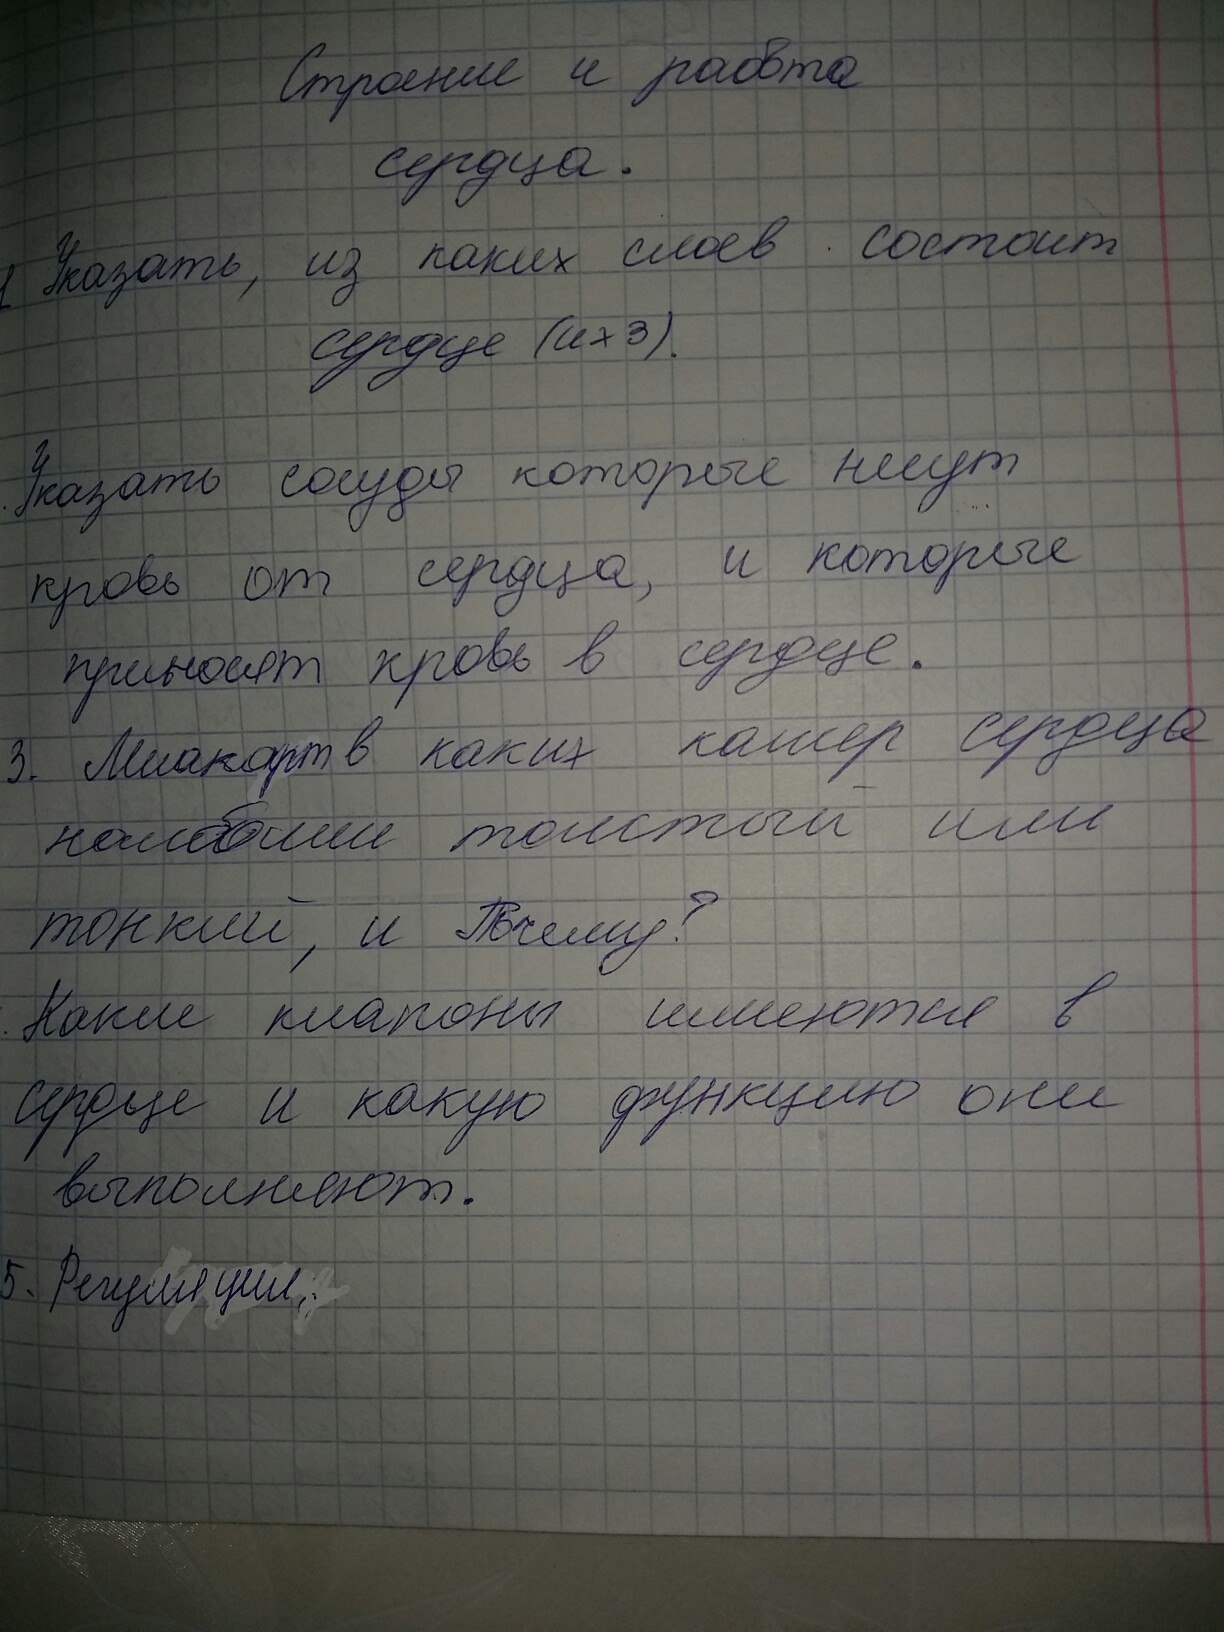 Строение и работа
сердца.
1 Указать, из каких слоев состоит
сердце (их 3).
Указать сосуды которые несут
кровь от сердца, и которые
приносят кровь в сердце.
3. Миакарт в каких камер сердца
наиболии толстый или
тонкий, и Почему?
Какие клапоны имеются в
сердце и какую функцию они
выполняют.
5. Регуляция.